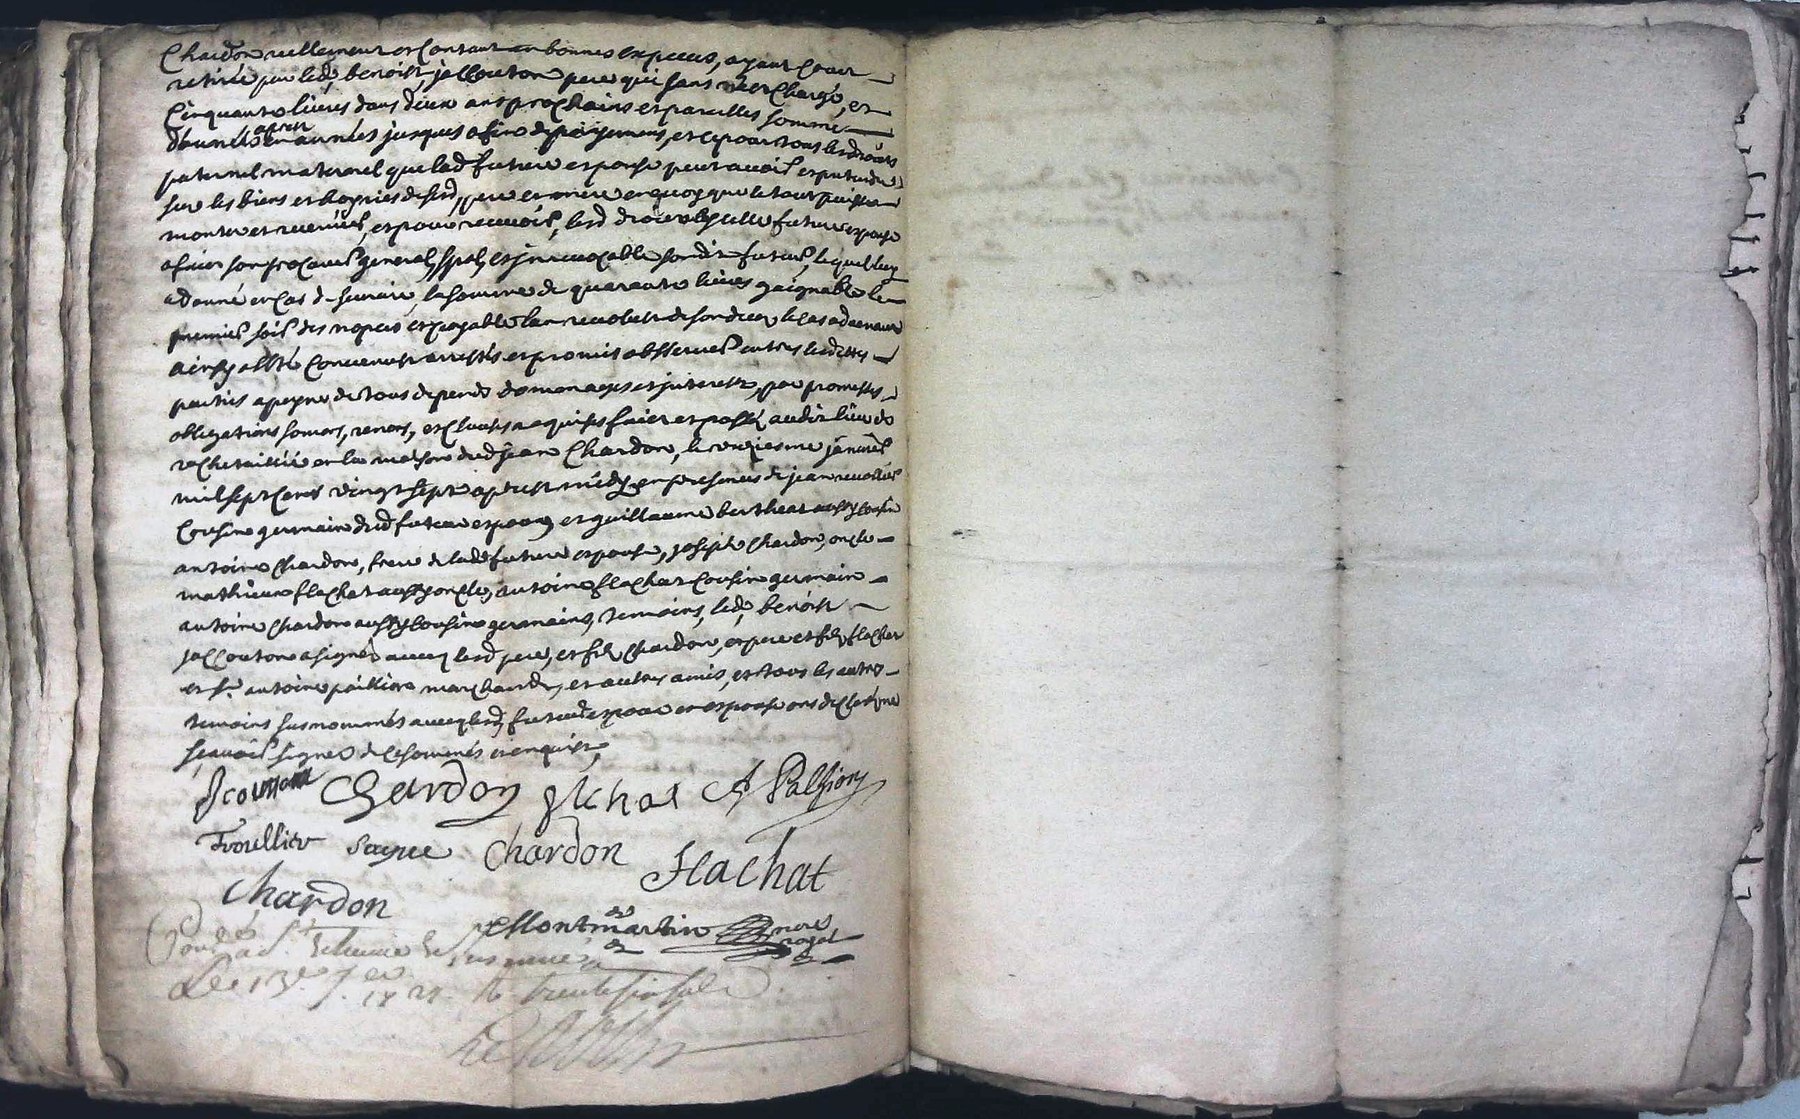 Chardon reellement et contant en bonnes especes, ayant
retirée par led. benoist jaccouton pere qui sans est chargé, et
Cinquante livres dans deux ans prochains et pareilles somme
années jusques a fin de payement, et ce pour tous les droits
paternel maternel que lad. future espouse peut avoir et pretendre
sur les biens et desd. pere et mere en quoy que le tout puisse
monter et revenir, et pour recevoir lesd. droits icelle future espouse
a fait son procureur general, spal, et irrevocable sondit futur, lequel luy
a donné en cas de survie, la somme de quarante livres gaignable le
premier soir des nopces et payable l'an revolu de son deces le cas advenant
ainsy a esté convenu arrestés et promis observer entres lesdittes
parties a peyne de tous depends dommages et interests, par promesses
obligations soumons, renons, et clauses requises fait et passé audit lieu de
rochetaillié en la maison dud. jean Chardon, le janvier
mil sept cens vingt sept apres midy en presences de jean
Cousin germain dud. futur espoux et guillaume bertheas aussy cousin
antoine Chardon, frere de lad. future espouse, joseph Chardon, oncle
mathieu flachat aussy oncle, antoine flachat cousin germain
antoine Chardon aussy cousin germains, temoins, led. benoist
jaccouton a signé avecq lesd. pere, et fils Chardon, et pere et fils flachat
et sr. antoine paillion marchands, et autres amis, et tous les autres
temoins susnommés avecq lesd. futurs espoux et espouse ont declaré ne
sçavoir signer de ce sommés et enquis
Chardon flchat A Palhion
Chardon
Flachat
Chardon
Montmartin nore
royal
a St. Etienne le
Le